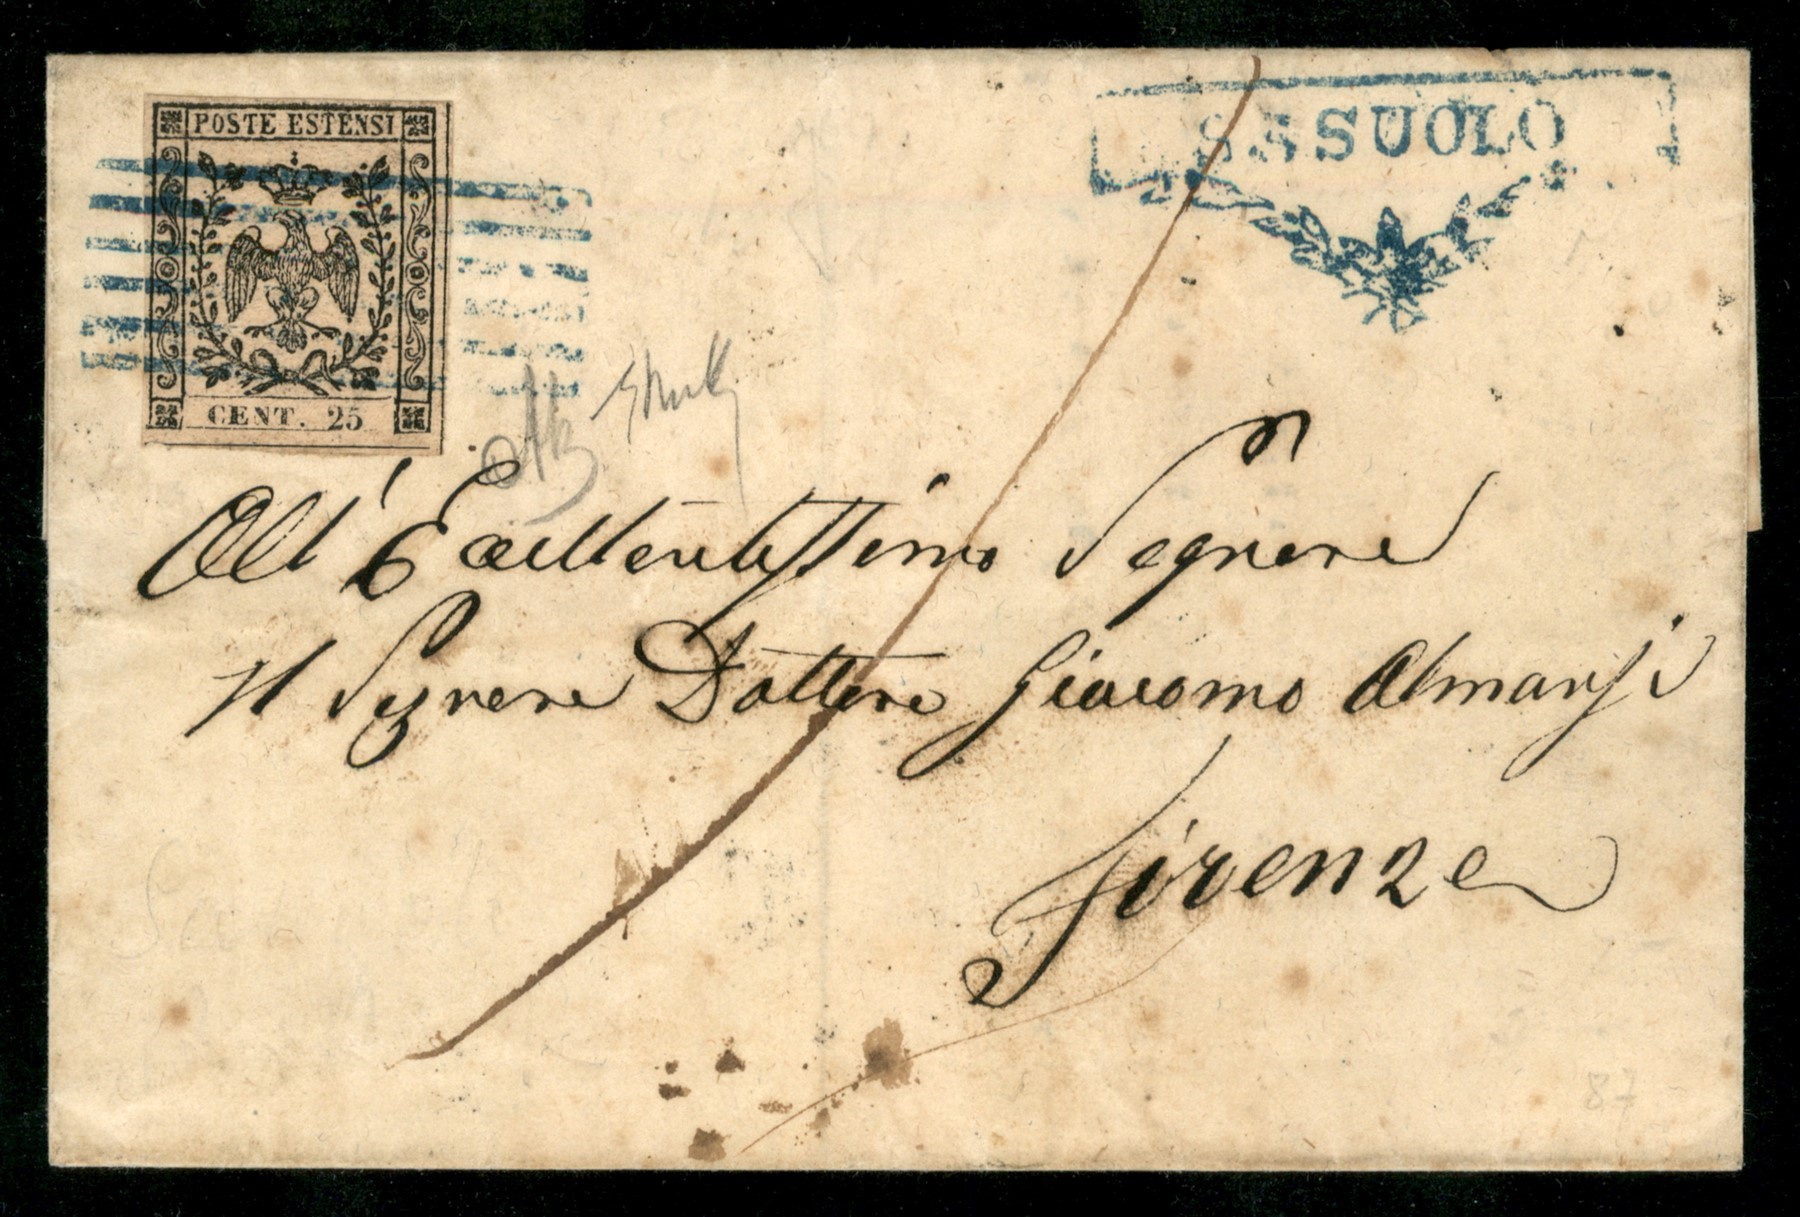 POSTE ESTENSI
CENT. 25
SASSUOLO
All'Eccellentissimo Signore
Il Signore Dottore Giacomo Almansi
Firenze
87